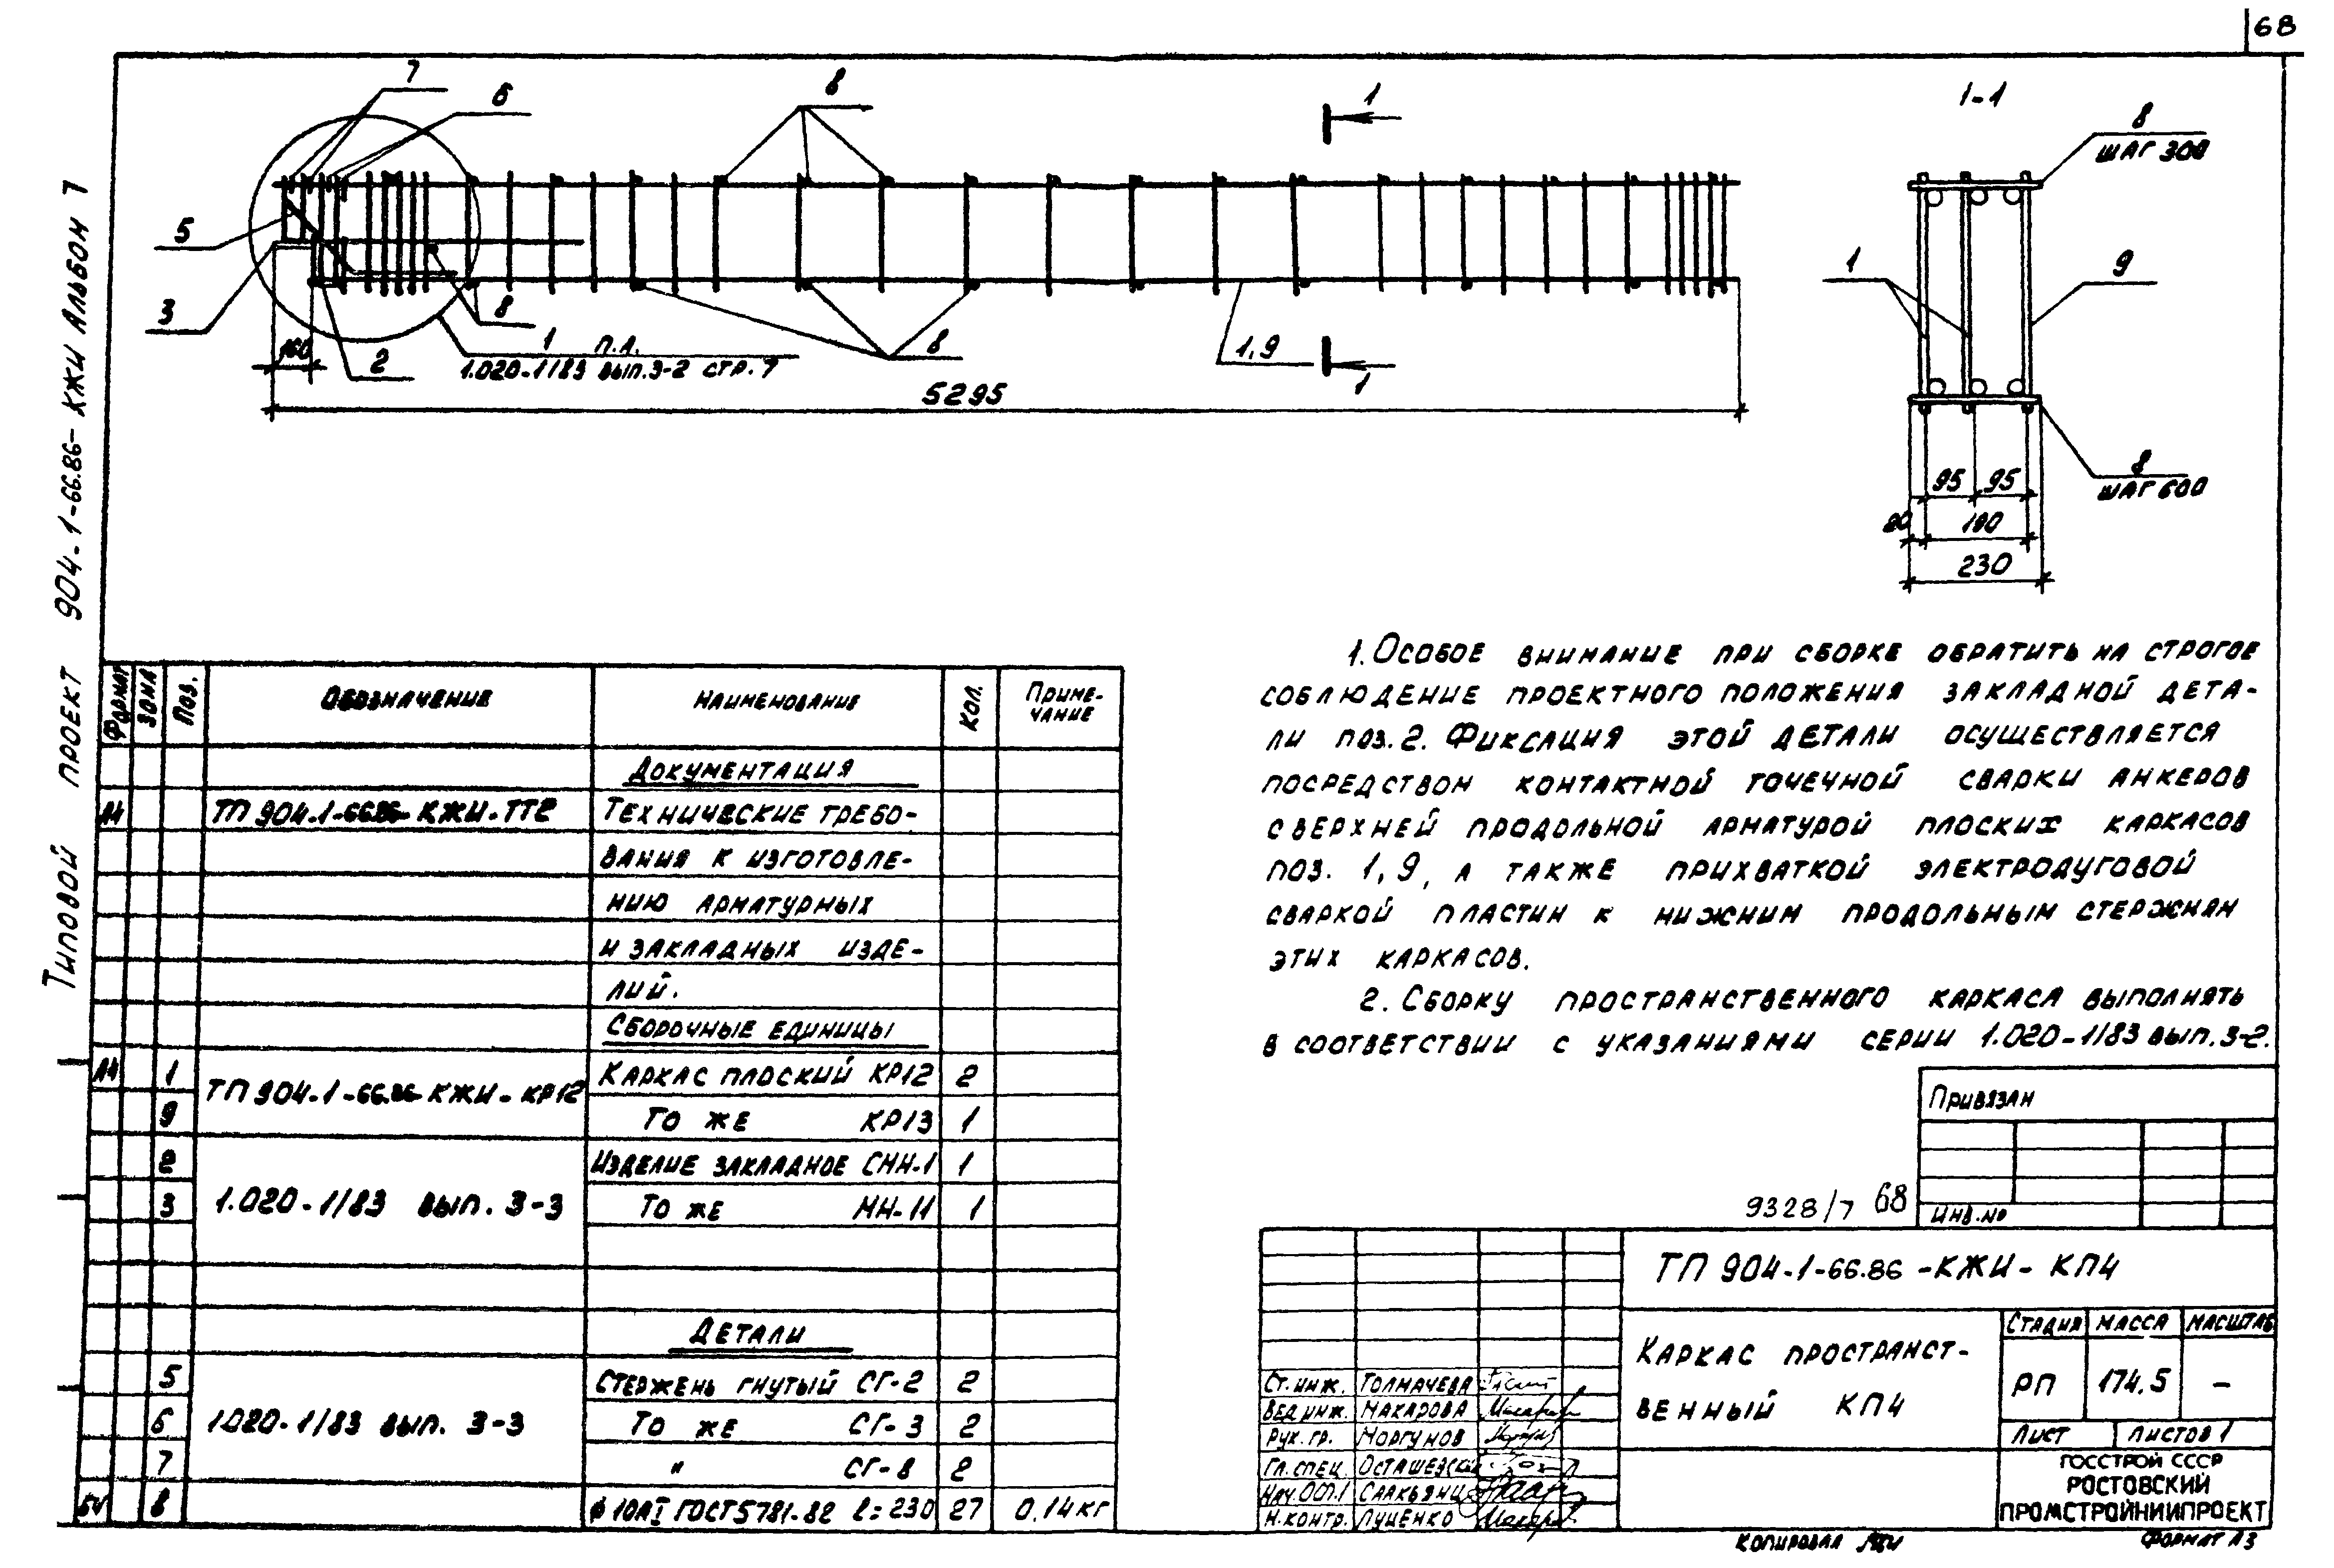 68
Типовой проект 904-1-66.86-КЖИ Альбом 7
7
6
8
1
5
3
2
8
1 п.л.
1.020-1/83 вып.3-2 стр.7
8
1,9
1
160
5295
1-1
8
шаг 300
1
9
8
шаг 600
95 95
20 190
230
1. Особое внимание при сборке обратить на строгое
соблюдение проектного положения закладной дета-
ли поз.2. Фиксация этой детали осуществляется
посредством контактной точечной сварки анкеров
с верхней продольной арматурой плоских каркасов
поз. 1, 9, а также прихваткой электродуговой
сваркой пластин к нижним продольным стержням
этих каркасов.
2. Сборку пространственного каркаса выполнять
в соответствии с указаниями серии 1.020-1/83 вып.3-2.
Формат Зона Поз. Обозначение Наименование Кол. Приме-
чание
Документация
А4 ТП 904-1-66.86-КЖИ-ТТ2 Технические требо-
вания к изготовле-
нию арматурных
и закладных изде-
лий.
Сборочные единицы
А4 1 ТП 904-1-66.86-КЖИ-КР12 Каркас плоский КР12 2
9 То же КР13 1
2 1.020-1/83 вып. 3-3 Изделие закладное СМН-1 1
3 То же МН-11 1
Детали
5 1.020-1/83 вып. 3-3 Стержень гнутый СГ-2 2
6 То же СГ-3 2
7 " СГ-8 2
БЧ 8 ф10АI ГОСТ5781-82 ℓ=230 27 0,14кг
Привязан
Инв.№
9328/7 68
ТП 904-1-66.86-КЖИ-КП4
Каркас пространст-
венный КП4
Стадия Масса Масштаб
РП 174,5 –
Лист Листов 1
Госстрой СССР
Ростовский
Промстройниипроект
Ст.инж. Толмачева
Вед.инж. Макарова
Рук.гр. Моргунов
Гл.спец.
Нач.ОСП.1 Саакьянц
Н.контр. Луценко
Копировал
Формат А3